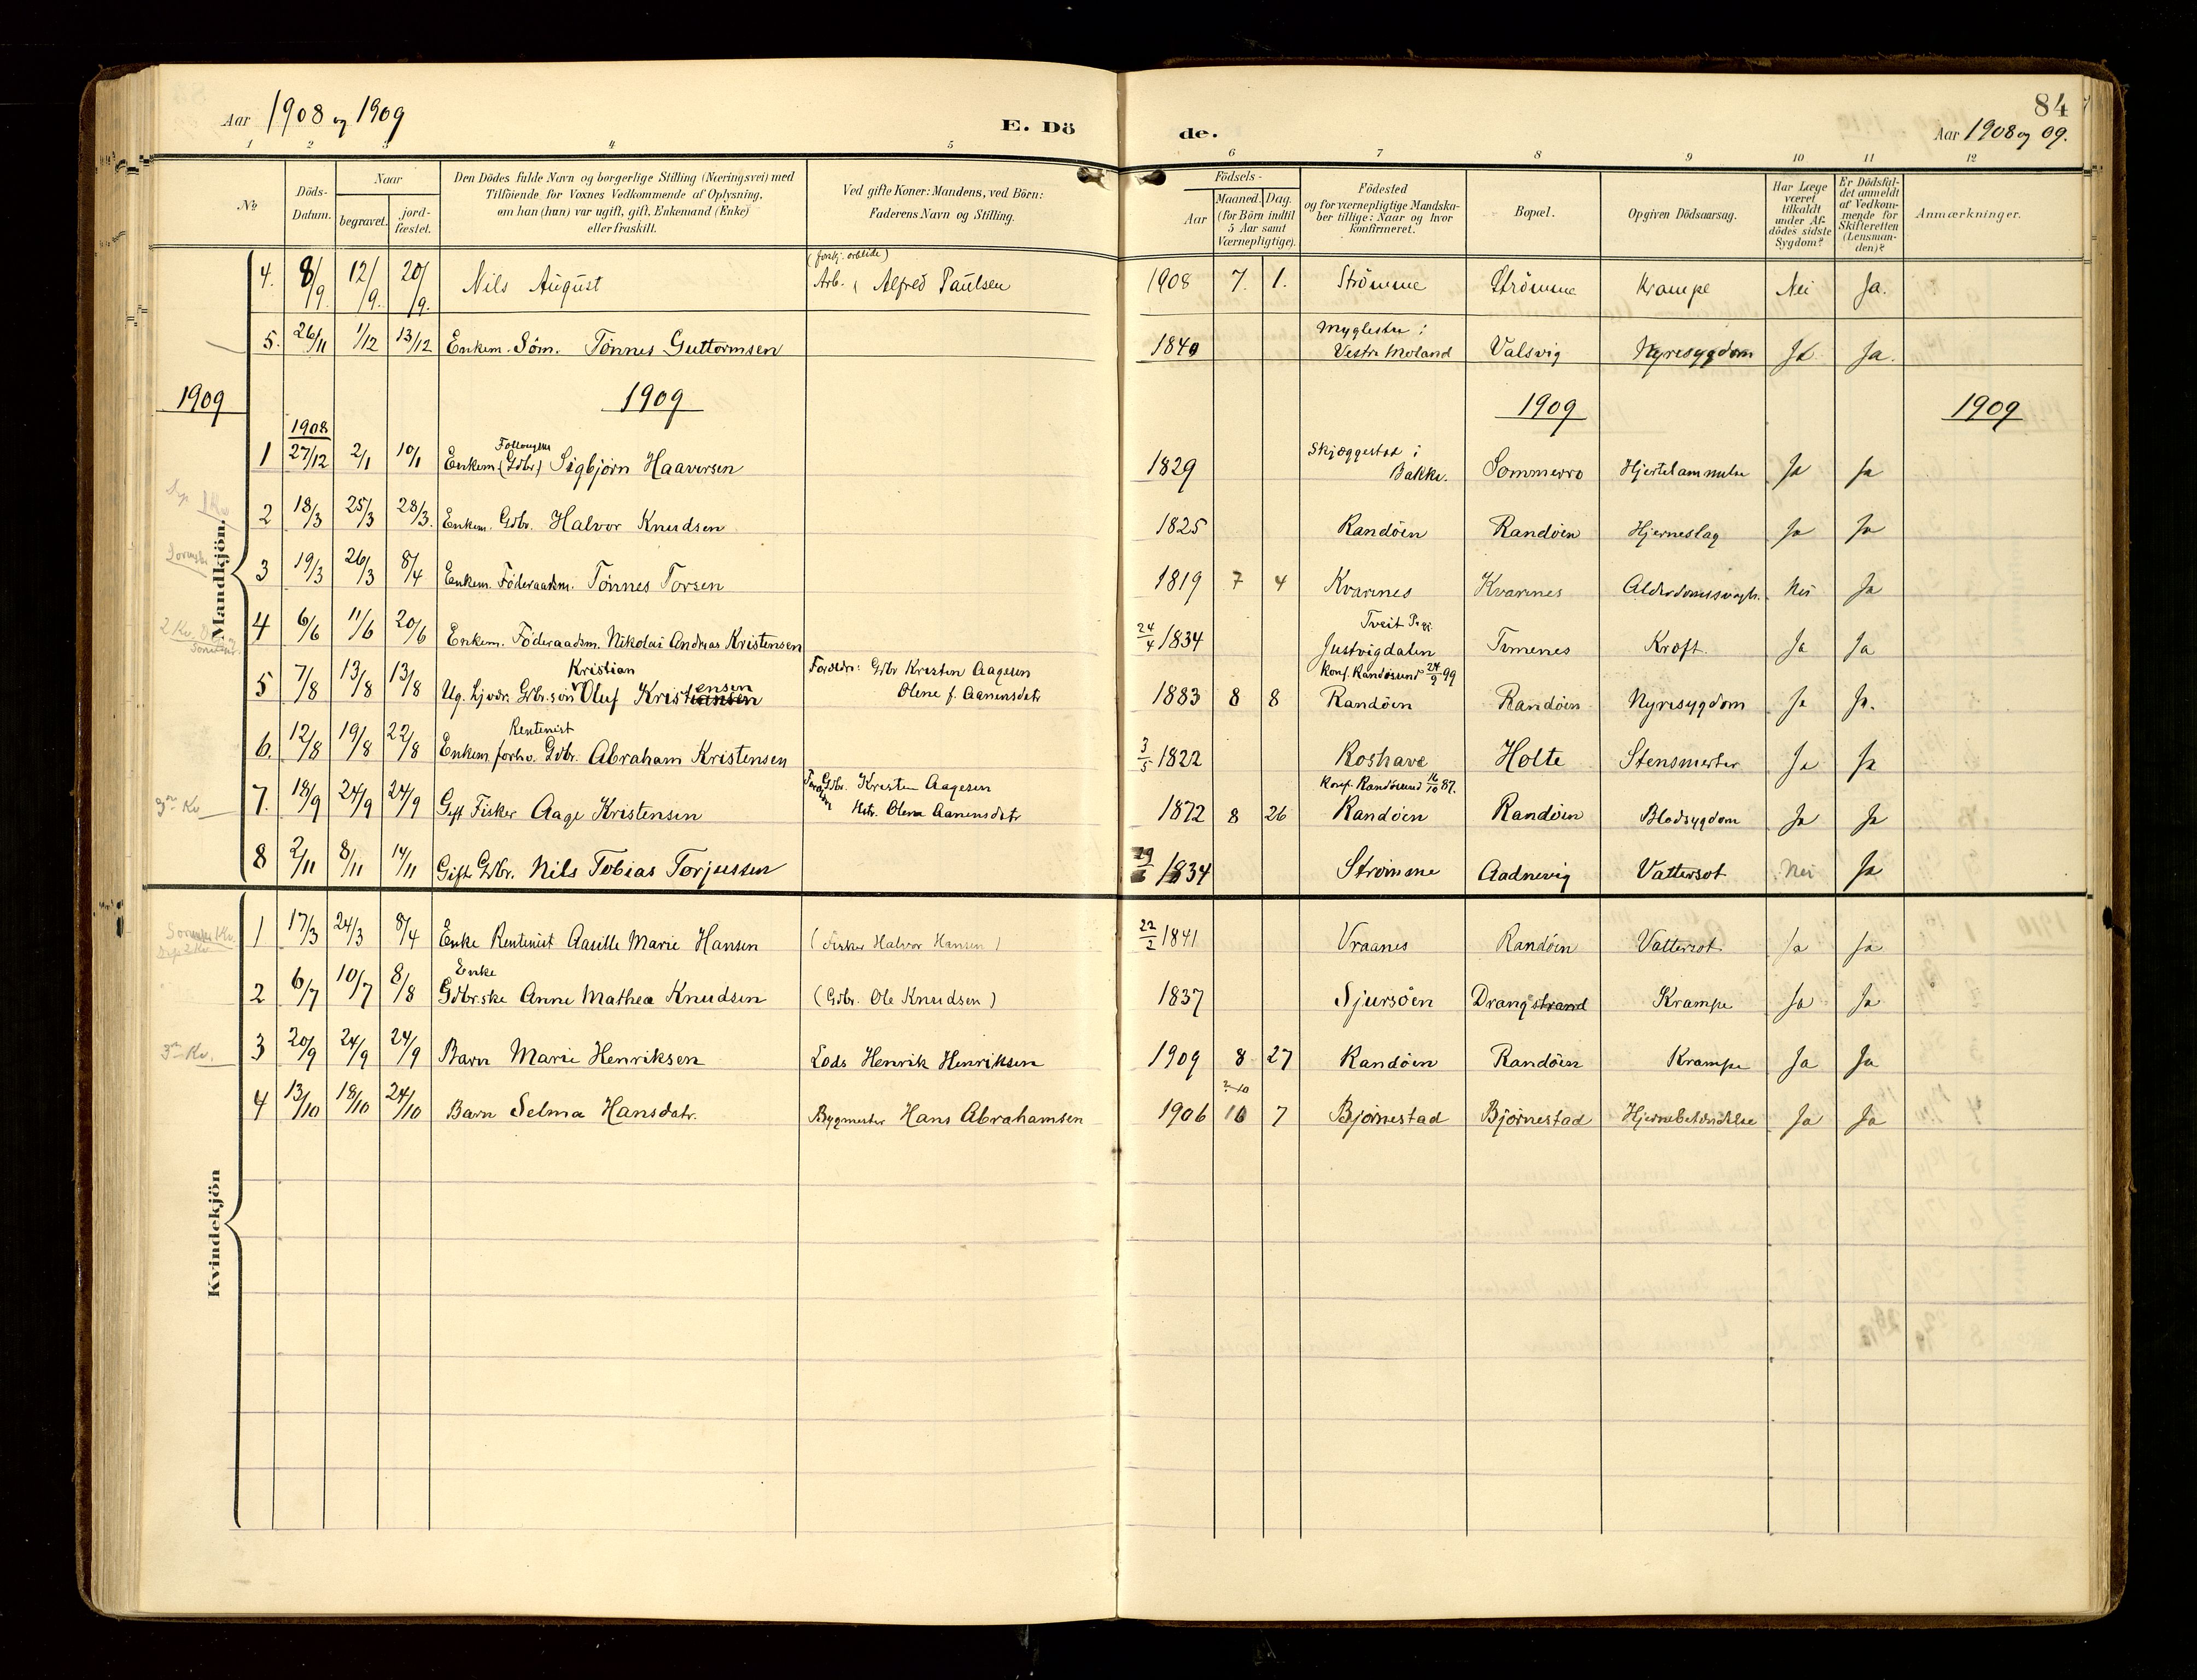 84
Aar 1908 og 1909
E. Dö
de.
Aar 1908 og 09.
1 2 3 4 5 6 7 8 9 10 11 12
No
Döds-Datum.
Naar
begravet.
jord-fæstet.
Den Dödes fulde Navn og borgerlige Stilling (Næringsvei) med
Tilföiende for Voxnes Vedkommende af Oplysning,
om han (hun) var ugift, gift, Enkemand (Enke)
eller fraskilt.
Ved gifte Koner: Mandens, ved Börn:
Faderens Navn og Stilling.
Födsels-
Aar
Maaned. Dag.
(for Börn indtil
5 Aar samt
Værnepligtige).
Födested
og for værnepligtige Mandska-
ber tillige: Naar og hvor
konfirmeret.
Bopæl.
Opgiven Dödsaarsag.
Har Læge
været
tilkaldt
under Af-
dödes sidste
Sygdom?
Er Dödsfal-
det anmeldt
af Vedkom-
mende for
Skifteretten
(Lensman-
den)?
Anmærkninger.
4. 8/9. 12/9. 20/9. Nils August Arb. Alfred Paulsen 1908 7. 1. Strömme Strömme Krampe Nei Ja.
5. 26/11 1/12 13/12 Enkem. Söm. Tönnes Guttormsen 1840 Myglestu i Vestre Moland Valsvig Nyresygdom Ja Ja.
1909 1909 1909 1909
1908
1 27/12 2/1 10/1 Enkem. (Gdbr) Sigbjörn Haaversen 1829 Skjæggestad i Bakke. Sommerro Hjertelammelse Ja Ja
2 18/3 25/3 28/3. Enkem. Gdbr. Halvor Knudsen 1825 Randöen Randöen Hjerneslag Ja Ja
3 19/3 26/3 8/4 Enkem. Föderaadsm. Tönnes Torsen 1819 7 4 Kvarnes Kvarnes Alderdomssvagh. Nei Ja
4 6/6 11/6 20/6 Enkem. Föderaadsm. Nikolai Andreas Kristensen 24/4 1834 Tveit Pgj. Justvigdalen Timenes Kræft Ja Ja
5 7/8 13/8 13/8 Ug. Gdbr.sön Kristian Oluf Kristensen Foreldr: Gdbr Kristen Aagesen
Olene f. Aanensdatr 1883 8 8 Konf. Randösund 24/9 99 Randöen Randöen Nyresygdom Ja Ja.
6. 12/8 19/8 22/8 Rentenist Enkem. forhv. Gdbr. Abraham Kristensen 3/5 1822 Roshave Holte Stensmerter Ja Ja
7. 18/9 24/9 24/9 Gift Fisker Aage Kristensen Gdbr. Kristen Aagesen
Hstr. Olene Aanensdatr 1872 8 26 Konf. Randösund 16/10 87. Randöen Randöen Blodsygdom Ja Ja
8 2/11 8/11 14/11 Gift Gdbr. Nils Tobias Torjussen 1834 Strömme Aadnevig Vattersot Nei Ja
Mandkjön.
3die Kv
1 17/3 24/3 8/4 Enke Rentenist Aasille Marie Hansen (Fisker Halvor Hansen) 22/2 1841 Vraanes Randöen Vattersot Ja Ja
2 6/7 10/7 8/8 Enke Gdbr.ske Anne Mathea Knudsen (Gdbr. Ole Knudsen) 1837 Sjursöen Drangstrand Krampe Ja Ja
3 20/9 24/9 24/9 Barn Marie Henriksen Lods Henrik Henriksen 1909 8 27 Randöen Randöen Krampe Ja Ja
4 13/10 18/10 24/10 Barn Selma Hansdatr. Bygmester Hans Abrahamsen 1906 10 7 Björnestad Björnestad Hjernebetændelse Ja Ja
3die Kv.
Kvindekjön